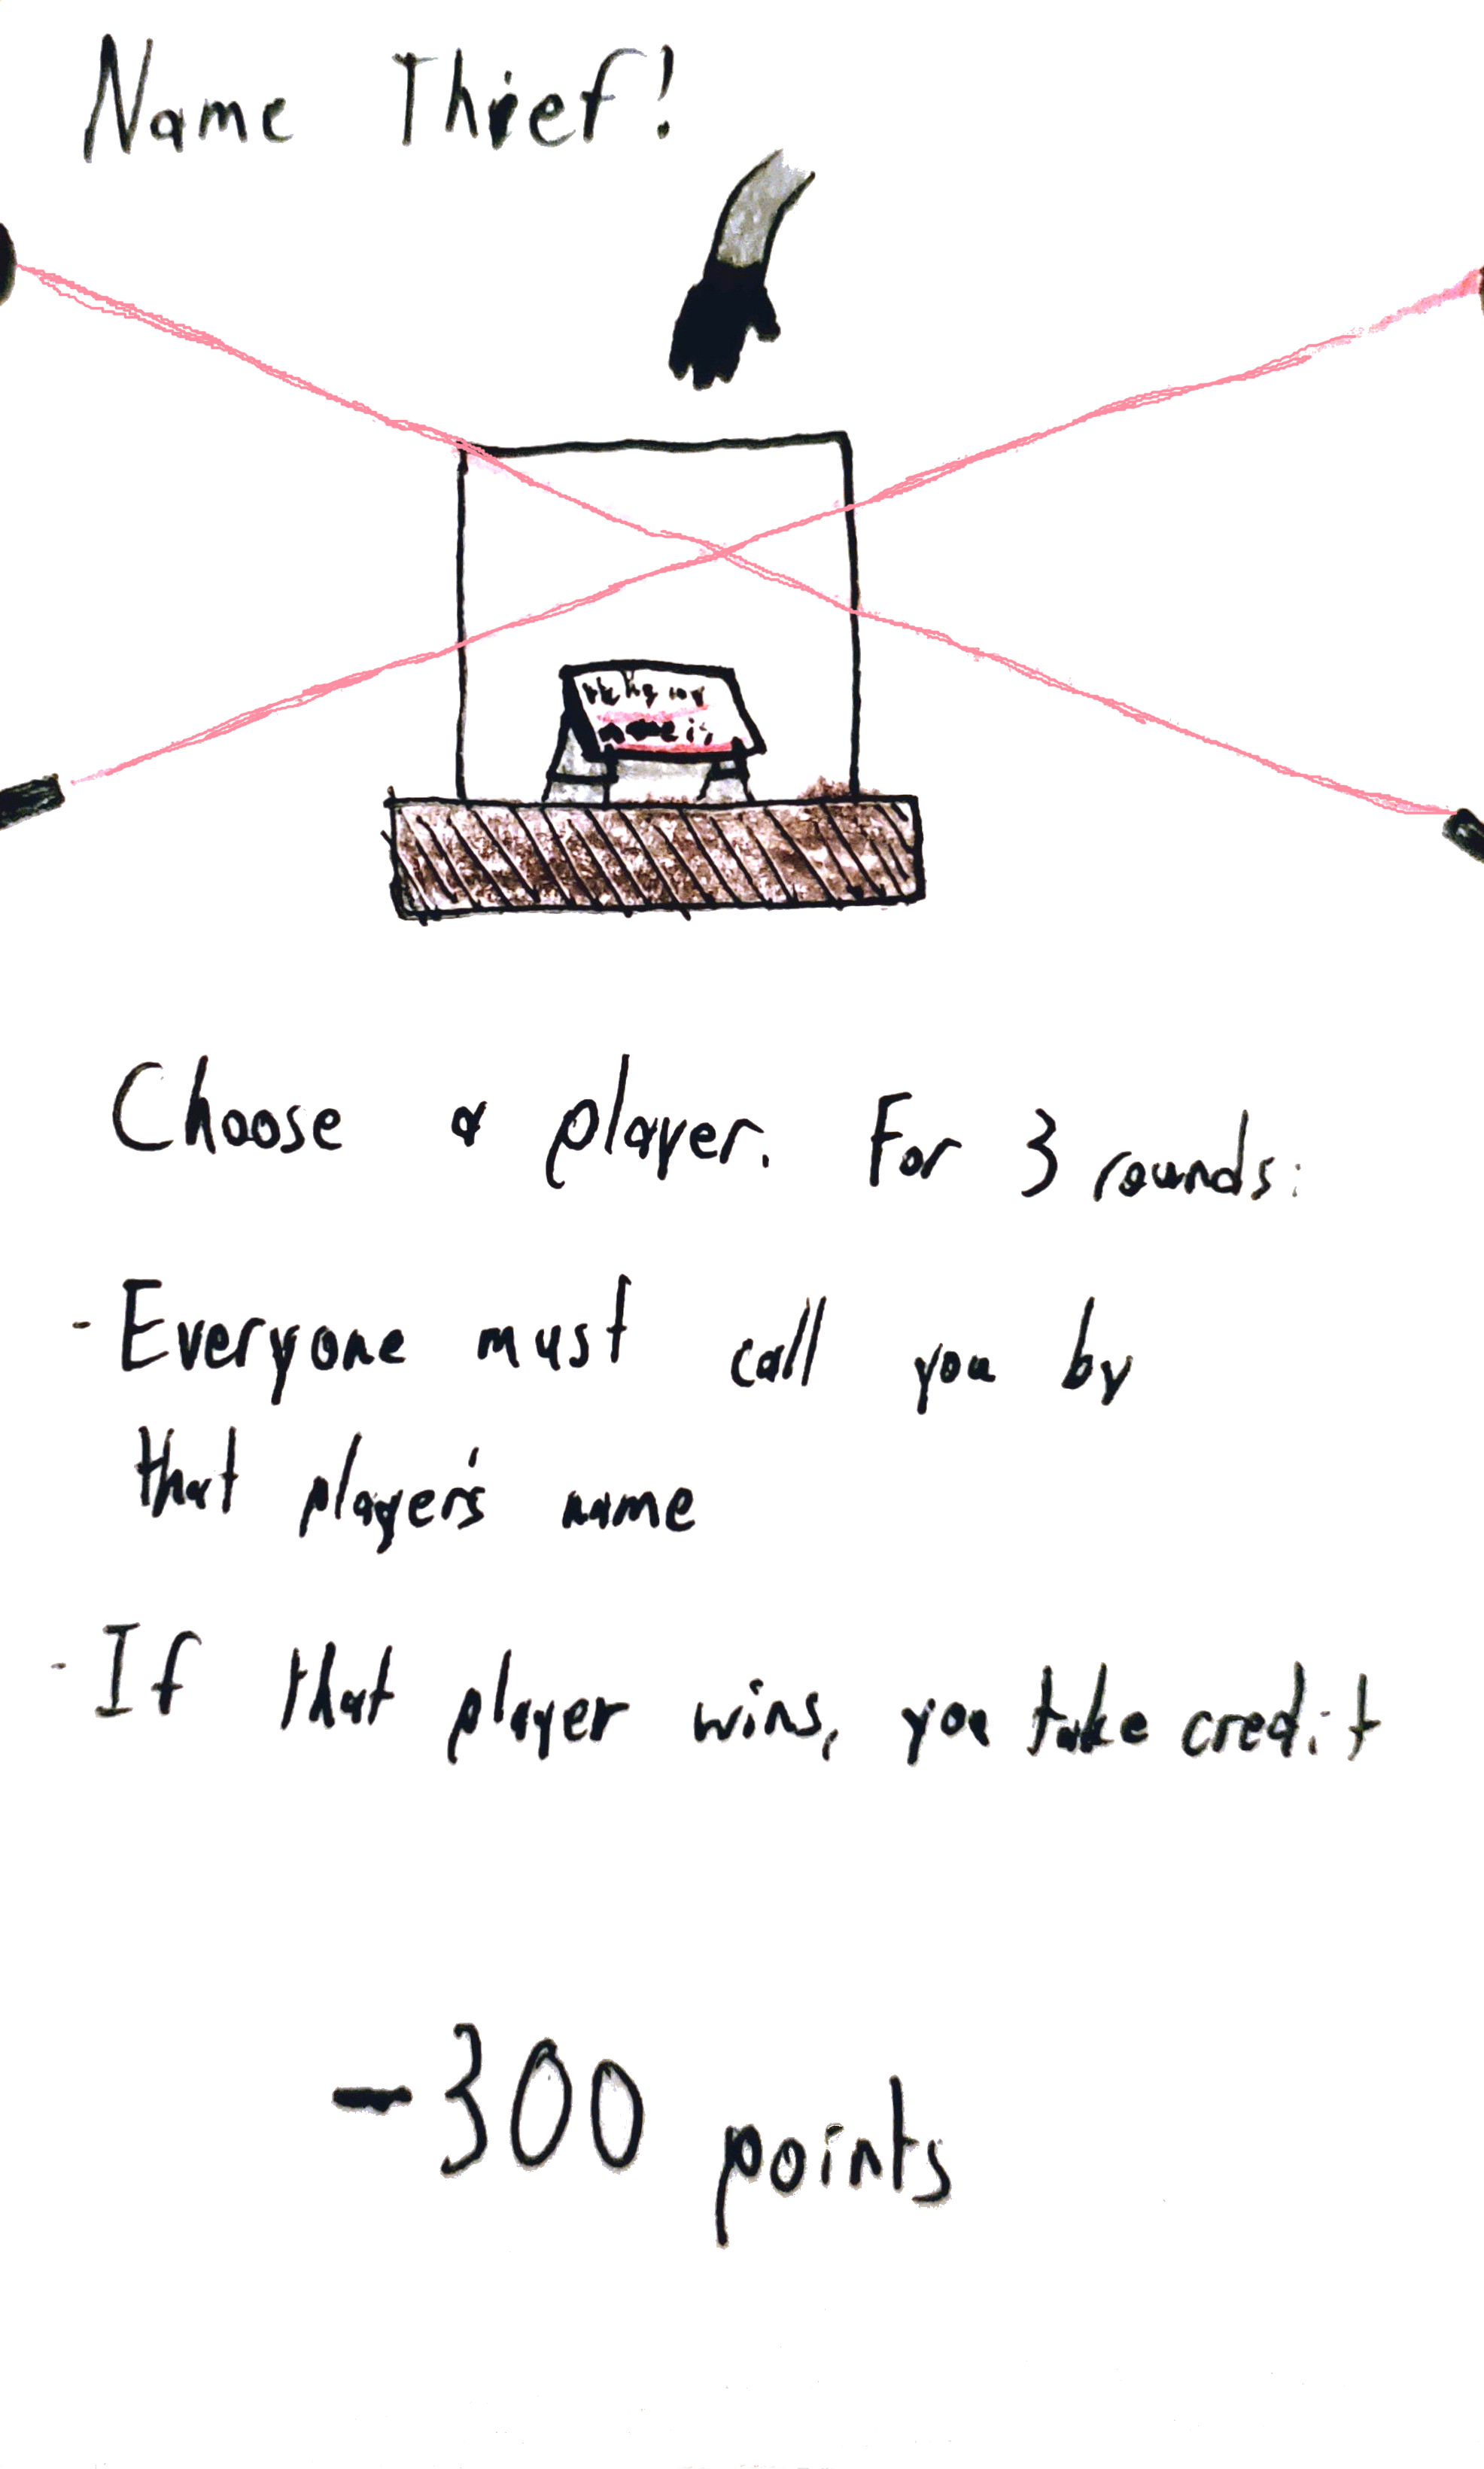 Name Thief!
name is
Choose a player. For 3 rounds:
- Everyone must call you by
that player's name
- If that player wins, you take credit
-300 points